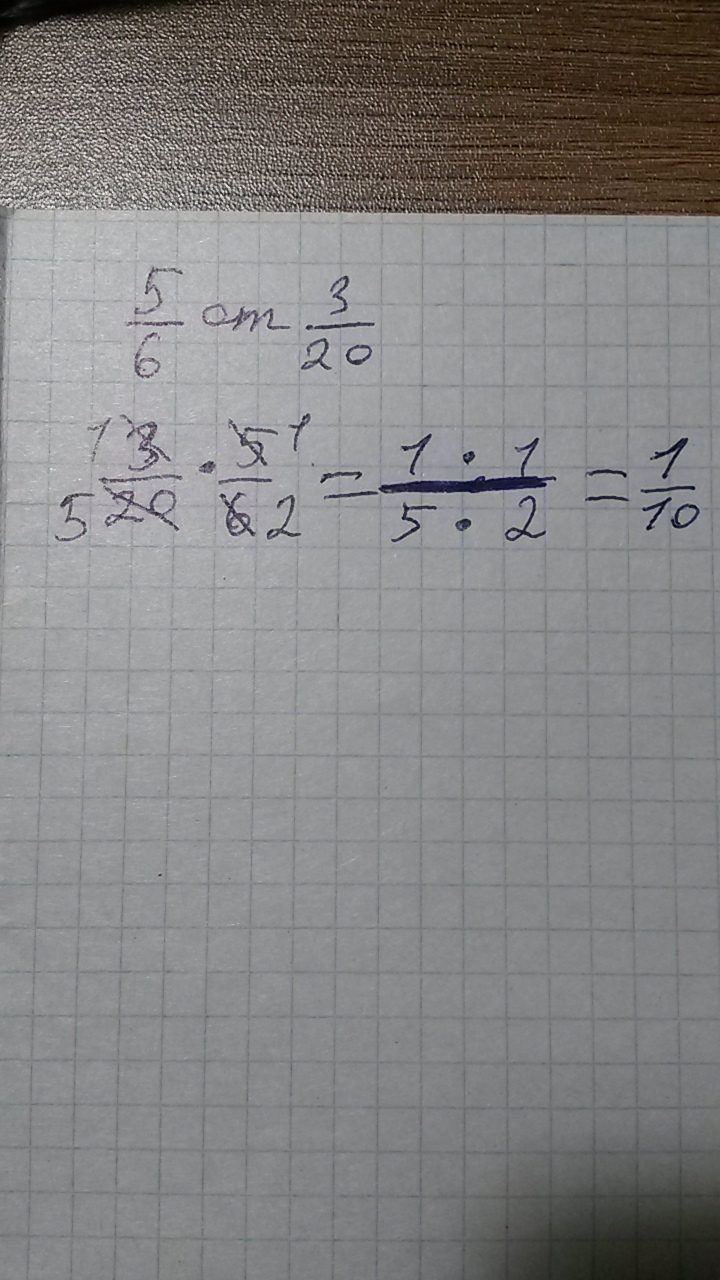 5/6 от 3/20
1 3/20 5 · 5/6 1 2 = 1 · 1/5 · 2 = 1/10